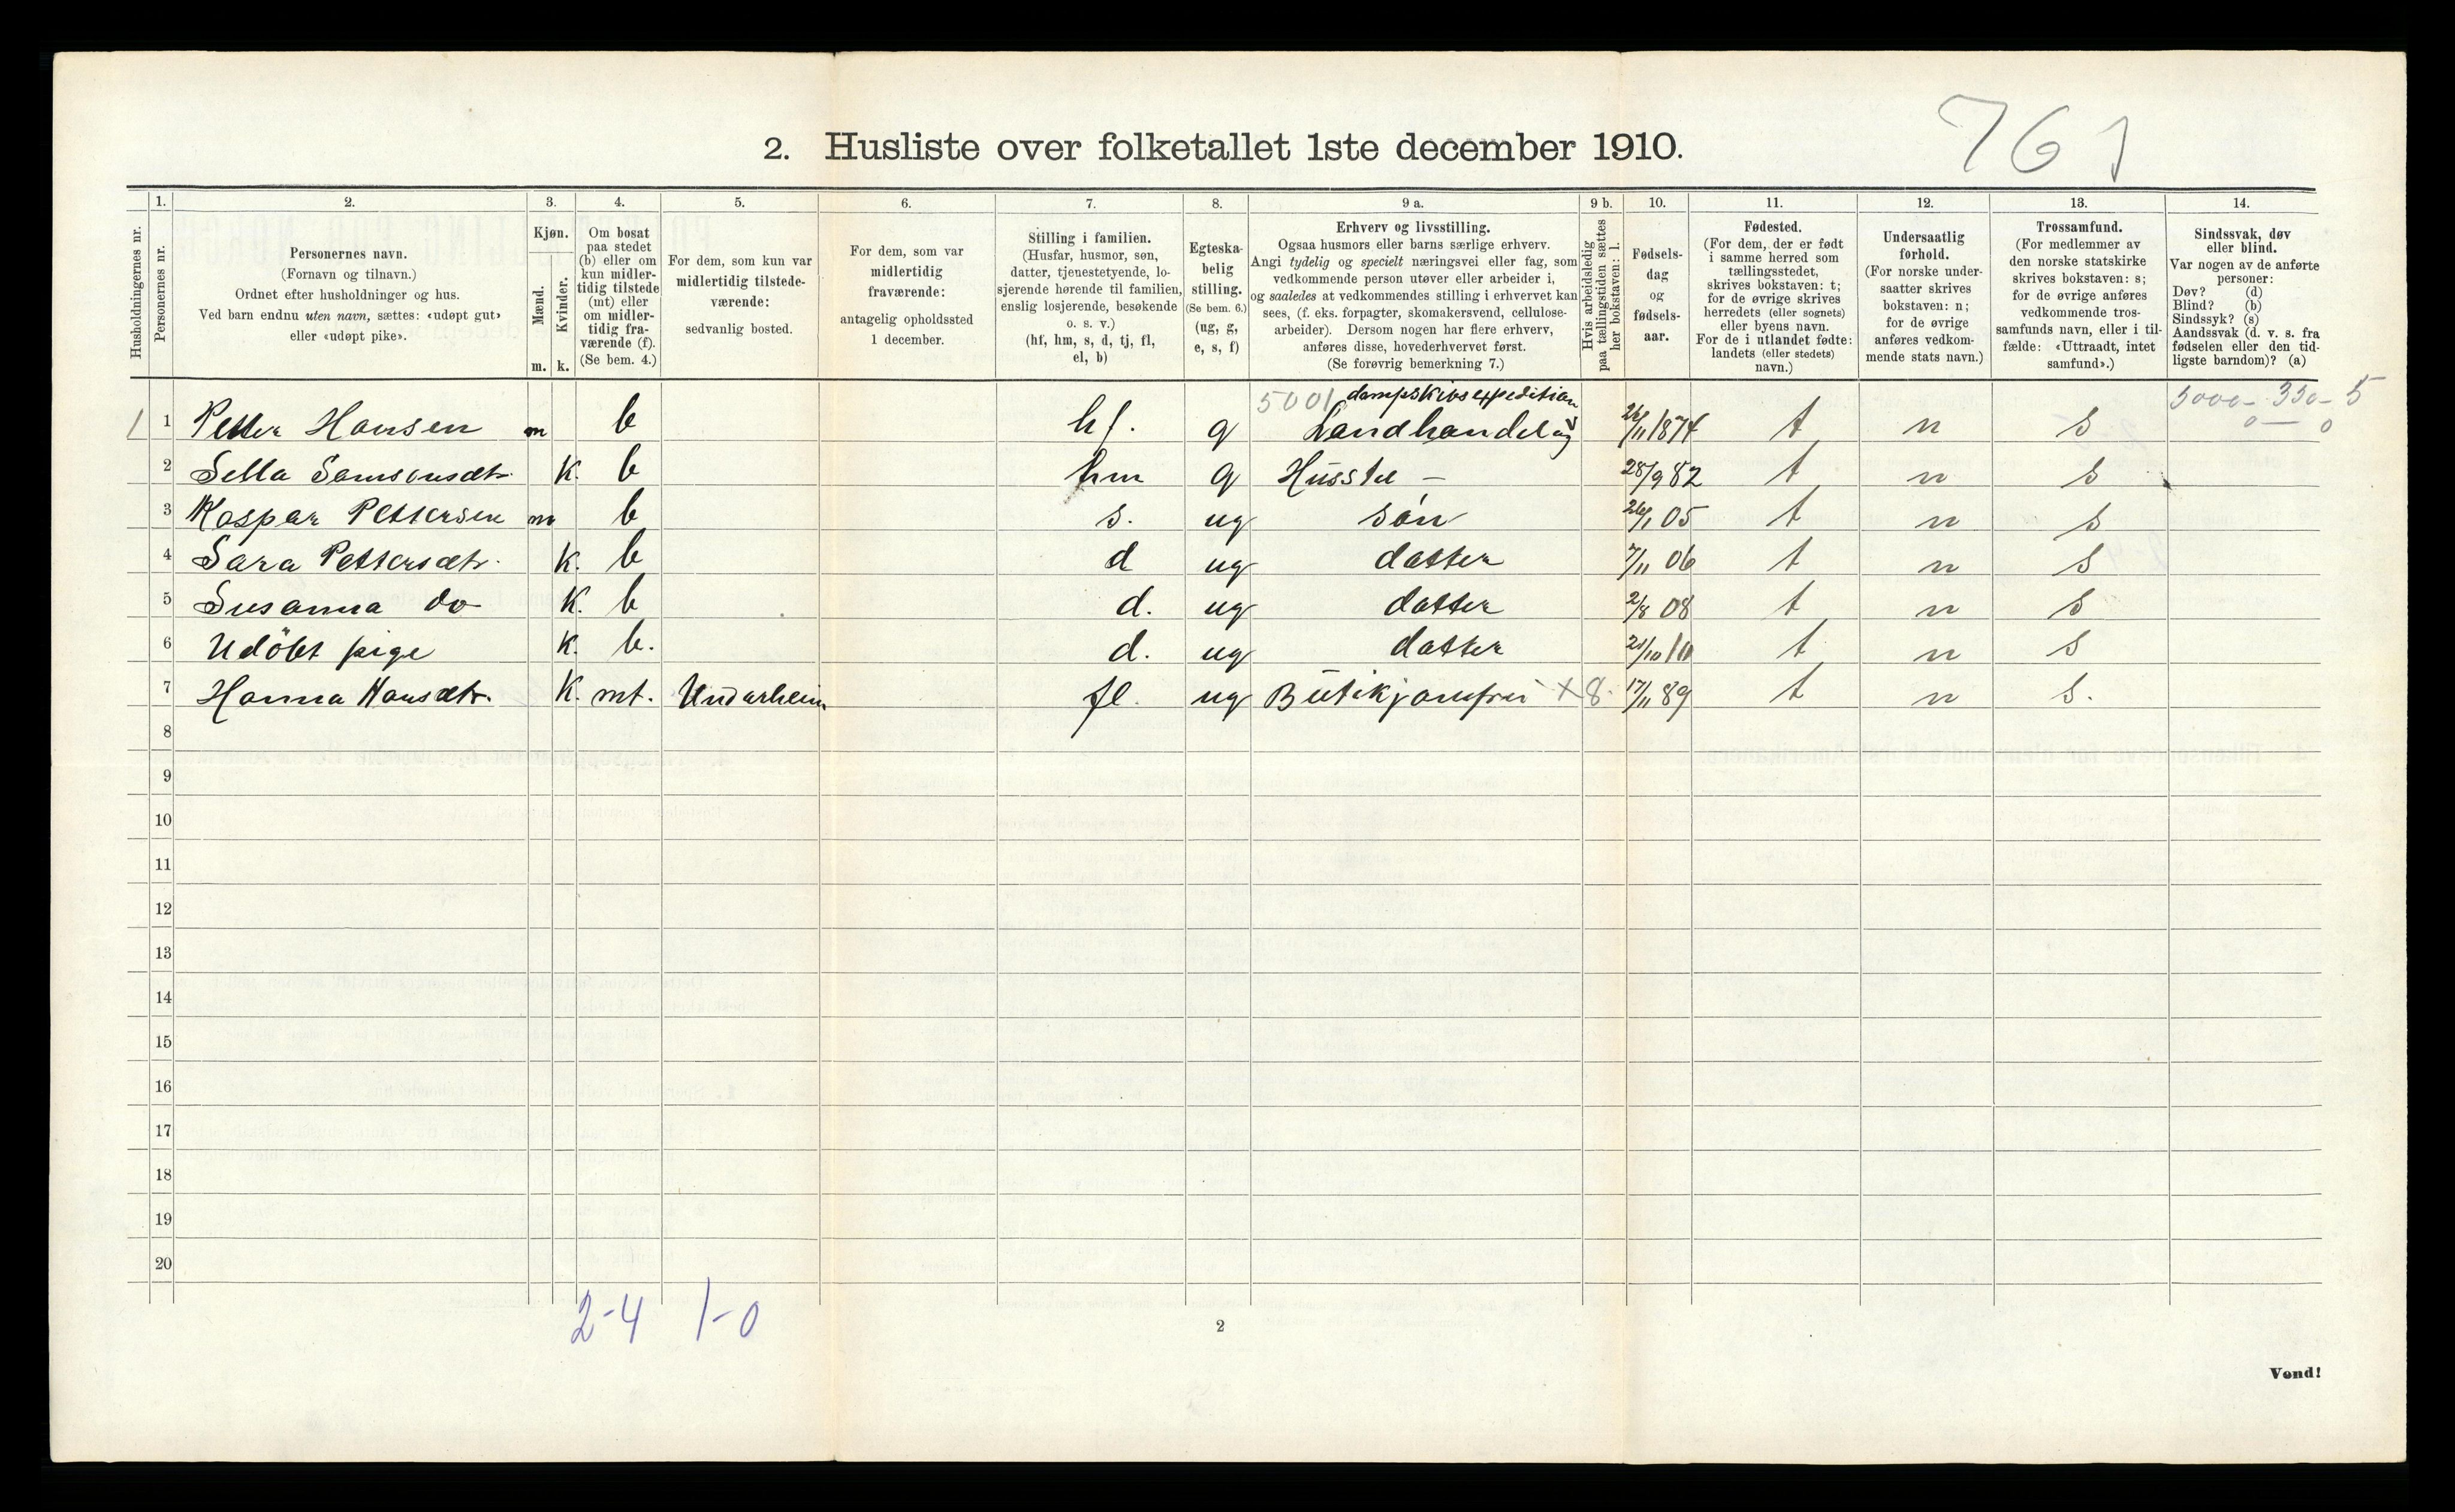 761
2. Husliste over folketallet 1ste december 1910.
Husholdningernes nr.
1.
Personernes nr.
2.
Personernes navn.
(Fornavn og tilnavn.)
Ordnet efter husholdninger og hus.
Ved barn endnu uten navn, sættes: «udøpt gut»
eller «udøpt pike».
3.
Kjøn.
Mænd.
Kvinder.
m. k.
4.
Om bosat
paa stedet
(b) eller om
kun midler-
tidig tilstede
(mt) eller
om midler-
tidig fra-
værende (f).
(Se bem. 4.)
5.
For dem, som kun var
midlertidig tilstede-
værende:
sedvanlig bosted.
6.
For dem, som var
midlertidig
fraværende:
antagelig opholdssted
1 december.
7.
Stilling i familien.
(Husfar, husmor, søn,
datter, tjenestetyende, lo-
sjerende hørende til familien,
enslig losjerende, besøkende
o. s. v.)
(hf, hm, s, d, tj, fl,
el, b)
8.
Egteska-
belig
stilling.
(Se bem. 6.)
(ug, g,
e, s, f)
9 a.
Erhverv og livsstilling.
Ogsaa husmors eller barns særlige erhverv.
Angi tydelig og specielt næringsvei eller fag, som
vedkommende person utøver eller arbeider i,
og saaledes at vedkommendes stilling i erhvervet kan
sees, (f. eks. forpagter, skomakersvend, cellulose-
arbeider). Dersom nogen har flere erhverv,
anføres disse, hovederhvervet først.
(Se forøvrig bemerkning 7.)
9 b.
Hvis arbeidsledig
paa tællingstiden sættes
her bokstaven: l.
10.
Fødsels-
dag
og
fødsels-
aar.
11.
Fødested.
(For dem, der er født
i samme herred som
tællingsstedet,
skrives bokstaven: t;
for de øvrige skrives
herredets (eller sognets)
eller byens navn.
For de i utlandet fødte:
landets (eller stedets)
navn.)
12.
Undersaatlig
forhold.
(For norske under-
saatter skrives
bokstaven: n;
for de øvrige
anføres vedkom-
mende stats navn.)
13.
Trossamfund.
(For medlemmer av
den norske statskirke
skrives bokstaven: s;
for de øvrige anføres
vedkommende tros-
samfunds navn, eller i til-
fælde: «Uttraadt, intet
samfund».)
14.
Sindssvak, døv
eller blind.
Var nogen av de anførte
personer:
Døv? (d)
Blind? (b)
Sindssyk? (s)
Aandssvak (d. v. s. fra
fødselen eller den tid-
ligste barndom)? (a)
5001 dampskibsexpedition 5000 - 350 - 5
1 1 Petter Hansen m b hf. g Landhandel og 26/11 1874 t n s 0 — 0
2 Sella Samsonsdtr. K. b hm g Husstel - 28/9 82 t n s
3 Kaspar Pettersen m b s. ug søn 26/1 05 t n s
4 Sara Pettersdtr. K. b d ug datter 7/11 06 t n s
5 Susanna do K. b d. ug datter 2/8 08 t n s
6 Udöbt pige K. b. d. ug datter 21/10 10 t n s
7 Hanna Hansdtr. K. mt. Undarheim fl. ug Butikjomfru × 8. 17/11 89 t n s.
8
9
10
11
12
13
14
15
16
17
18
19
20
2-4 1-0
2
Vend!